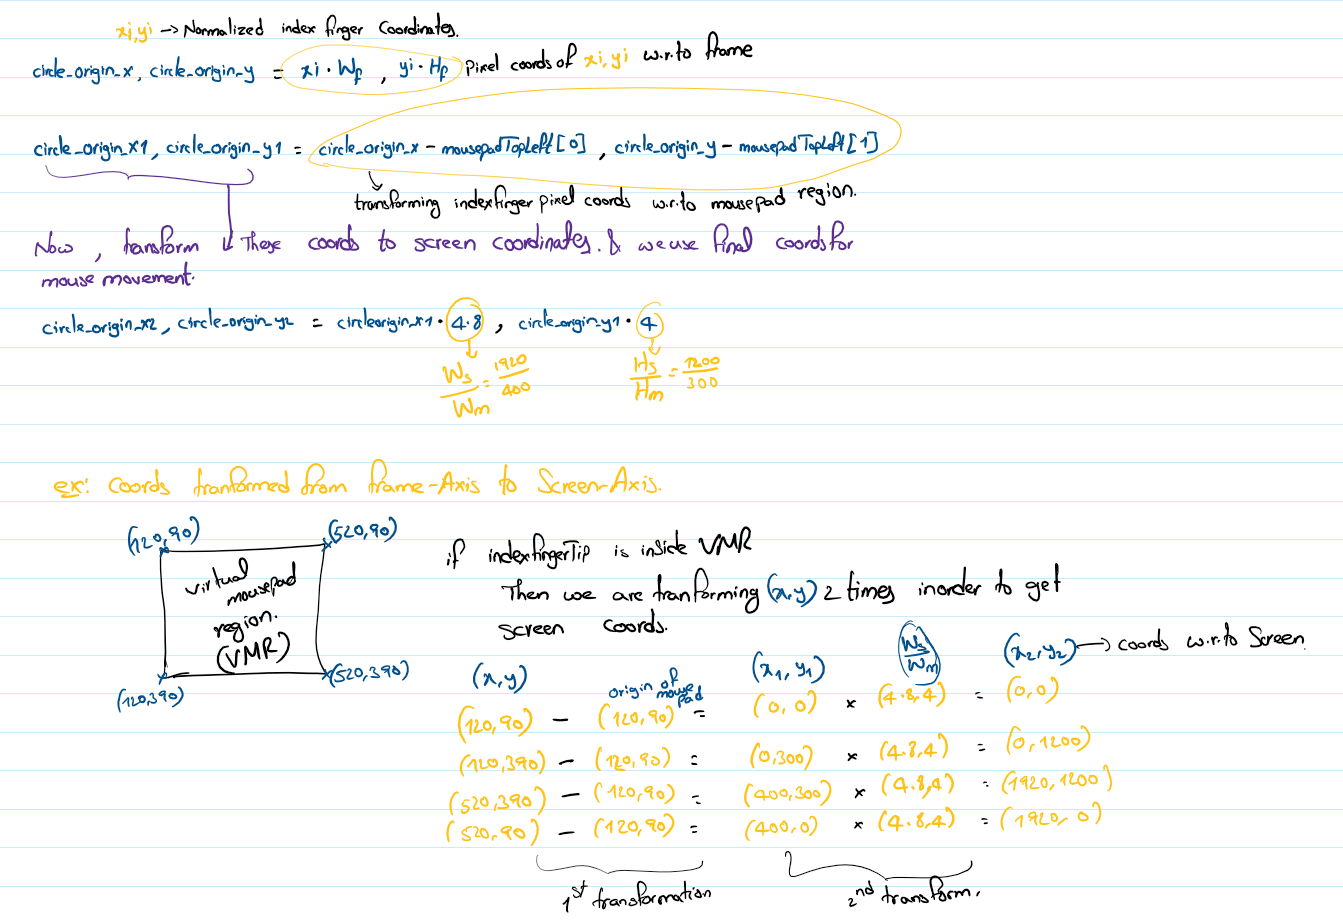 xi,yi -> Normalized index finger Coordinates.
circle_origin_x, circle_origin_y = xi · Wf , yi · Hf Pixel coords of xi,yi w.r.to frame
circle_origin_x1, circle_origin_y1 = circle_origin_x - mousepadTopLeft[0] , circle_origin_y - mousepadTopLeft[1]
transforming indexfinger pixel coords w.r.to mousepad region.
Now , transform These coords to screen coordinates. & we use final coords for
mouse movement.
circle_origin_x2, circle_origin_y2 = circleorigin_x1 · 4.8 , circle_origin_y1 · 4
Ws/Wm = 1920/400 Hs/Hm = 1200/300
ex: Coords tranformed from frame-Axis to Screen-Axis.
(120,90) (520,90)
virtual
mousepad
region.
(VMR)
(120,390) (520,390)
if indexfingerTip is inside VMR
Then we are tranforming (x,y) 2 times inorder to get
screen coords.
(x,y) origin of mouse pad (x1, y1) Ws/Wm (x2, y2) -> coords w.r.to Screen
(120,90) - (120,90) = (0, 0) × (4.8,4) = (0,0)
(120,390) - (120,90) = (0,300) × (4.8,4) = (0,1200)
(520,390) - (120,90) = (400,300) × (4.8,4) = (1920,1200)
(520,90) - (120,90) = (400,0) × (4.8,4) = (1920, 0)
1st transformation 2nd transform.